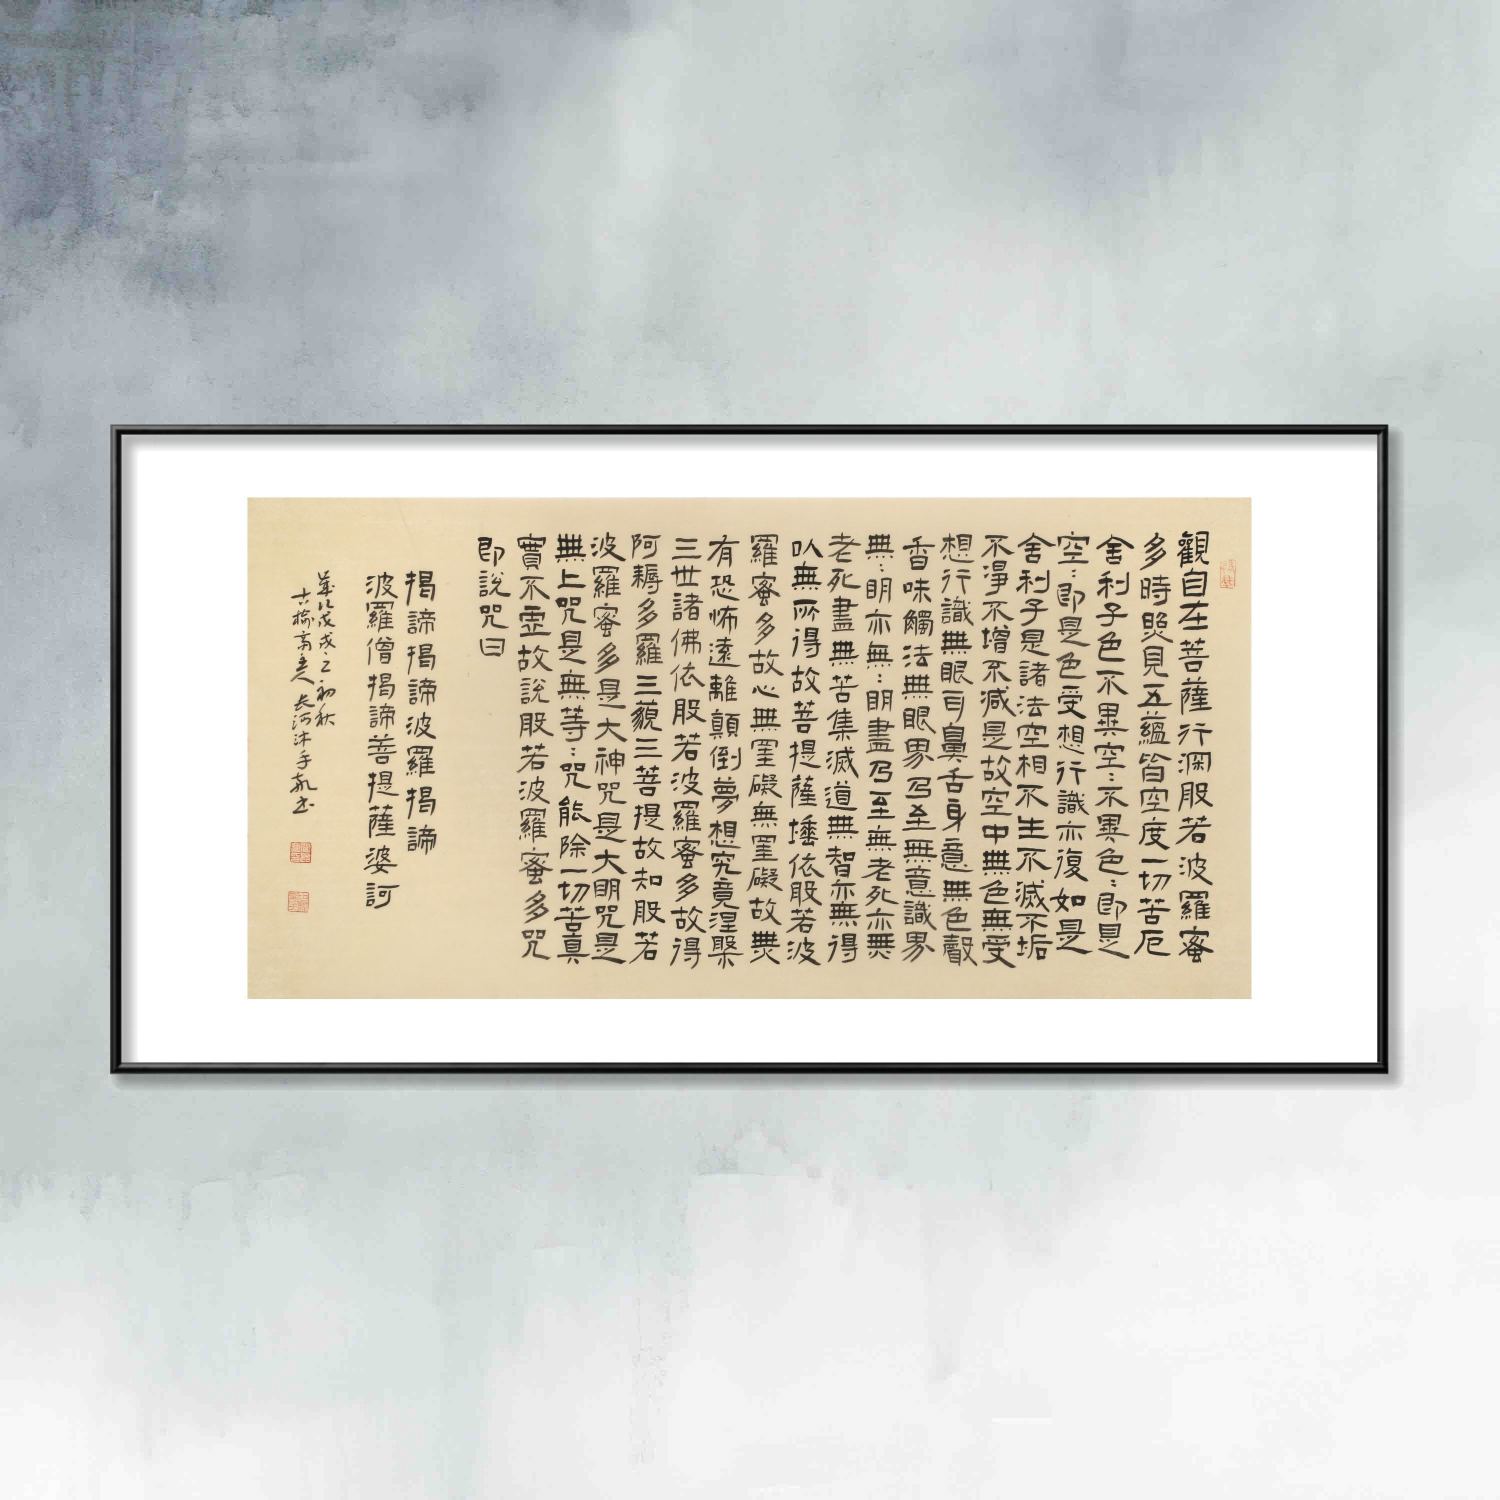 觀自在菩薩行深般若波羅蜜
多時照見五蘊皆空度一切苦厄
舍利子色不異空:不異色:即是
空:即是色受想行識亦復如是
舍利子是諸法空相不生不滅不垢
不淨不增不減是故空中無色無受
想行識無眼耳鼻舌身意無色聲
香味觸法無眼界乃至無意識界
無:明亦無:明盡乃至無老死亦無
老死盡無苦集滅道無智亦無得
以無所得故菩提薩埵依般若波
羅蜜多故心無罣礙無罣礙故無
有恐怖遠離顛倒夢想究竟涅槃
三世諸佛依般若波羅蜜多故得
阿耨多羅三藐三菩提故知般若
波羅蜜多是大神咒是大明咒是
無上咒是無等:咒能除一切苦真
實不虛故說般若波羅蜜多咒
即說咒曰
揭諦揭諦波羅揭諦
波羅僧揭諦菩提薩婆訶
戊戌之初秋
長河沐手敬書